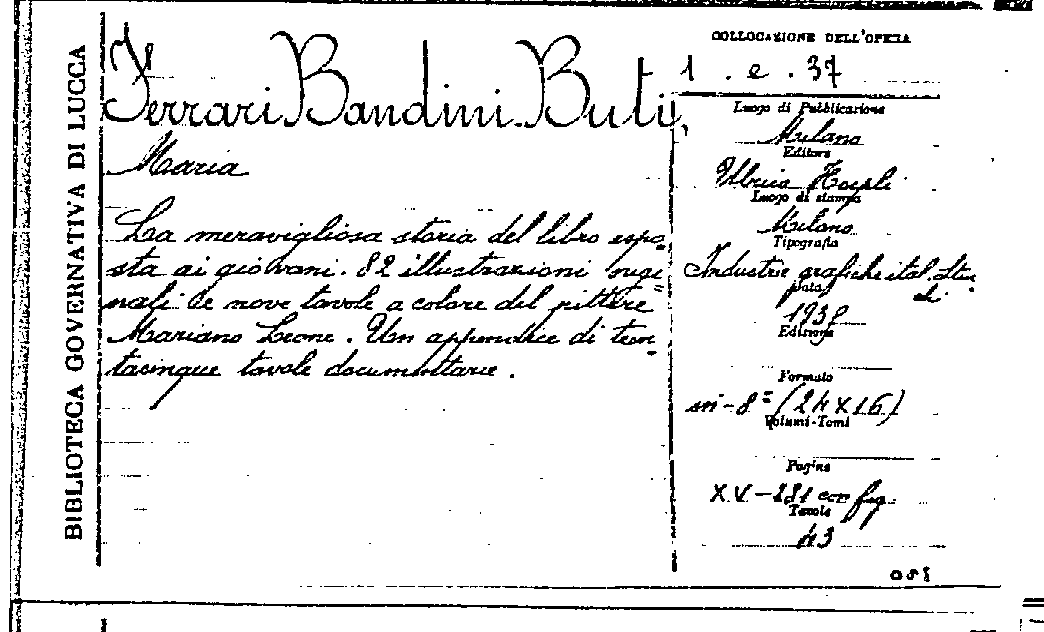 BIBLIOTECA GOVERNATIVA DI LUCCA
Ferrari Bandini Buti,
Maria
La meravigliosa storia del libro espo=
sta ai giovani. 82 illustrazioni origi=
nali e nove tavole a colore del pittore
Mariano Leone. Un appendice di tren=
tacinque tavole documentarie.
COLLOCAZIONE DELL'OPERA
1 . e . 37
Luogo di Pubblicazione
Milano
Editore
Ulrico Hoepli
Luogo di stampa
Milano
Tipografia
Industrie grafiche ital. Stuc
chi
Data
Edizione
Formato
in-8= (24x16)
Volumi-Tomi
Pagine
XV-281 con fig.
Tavole
43